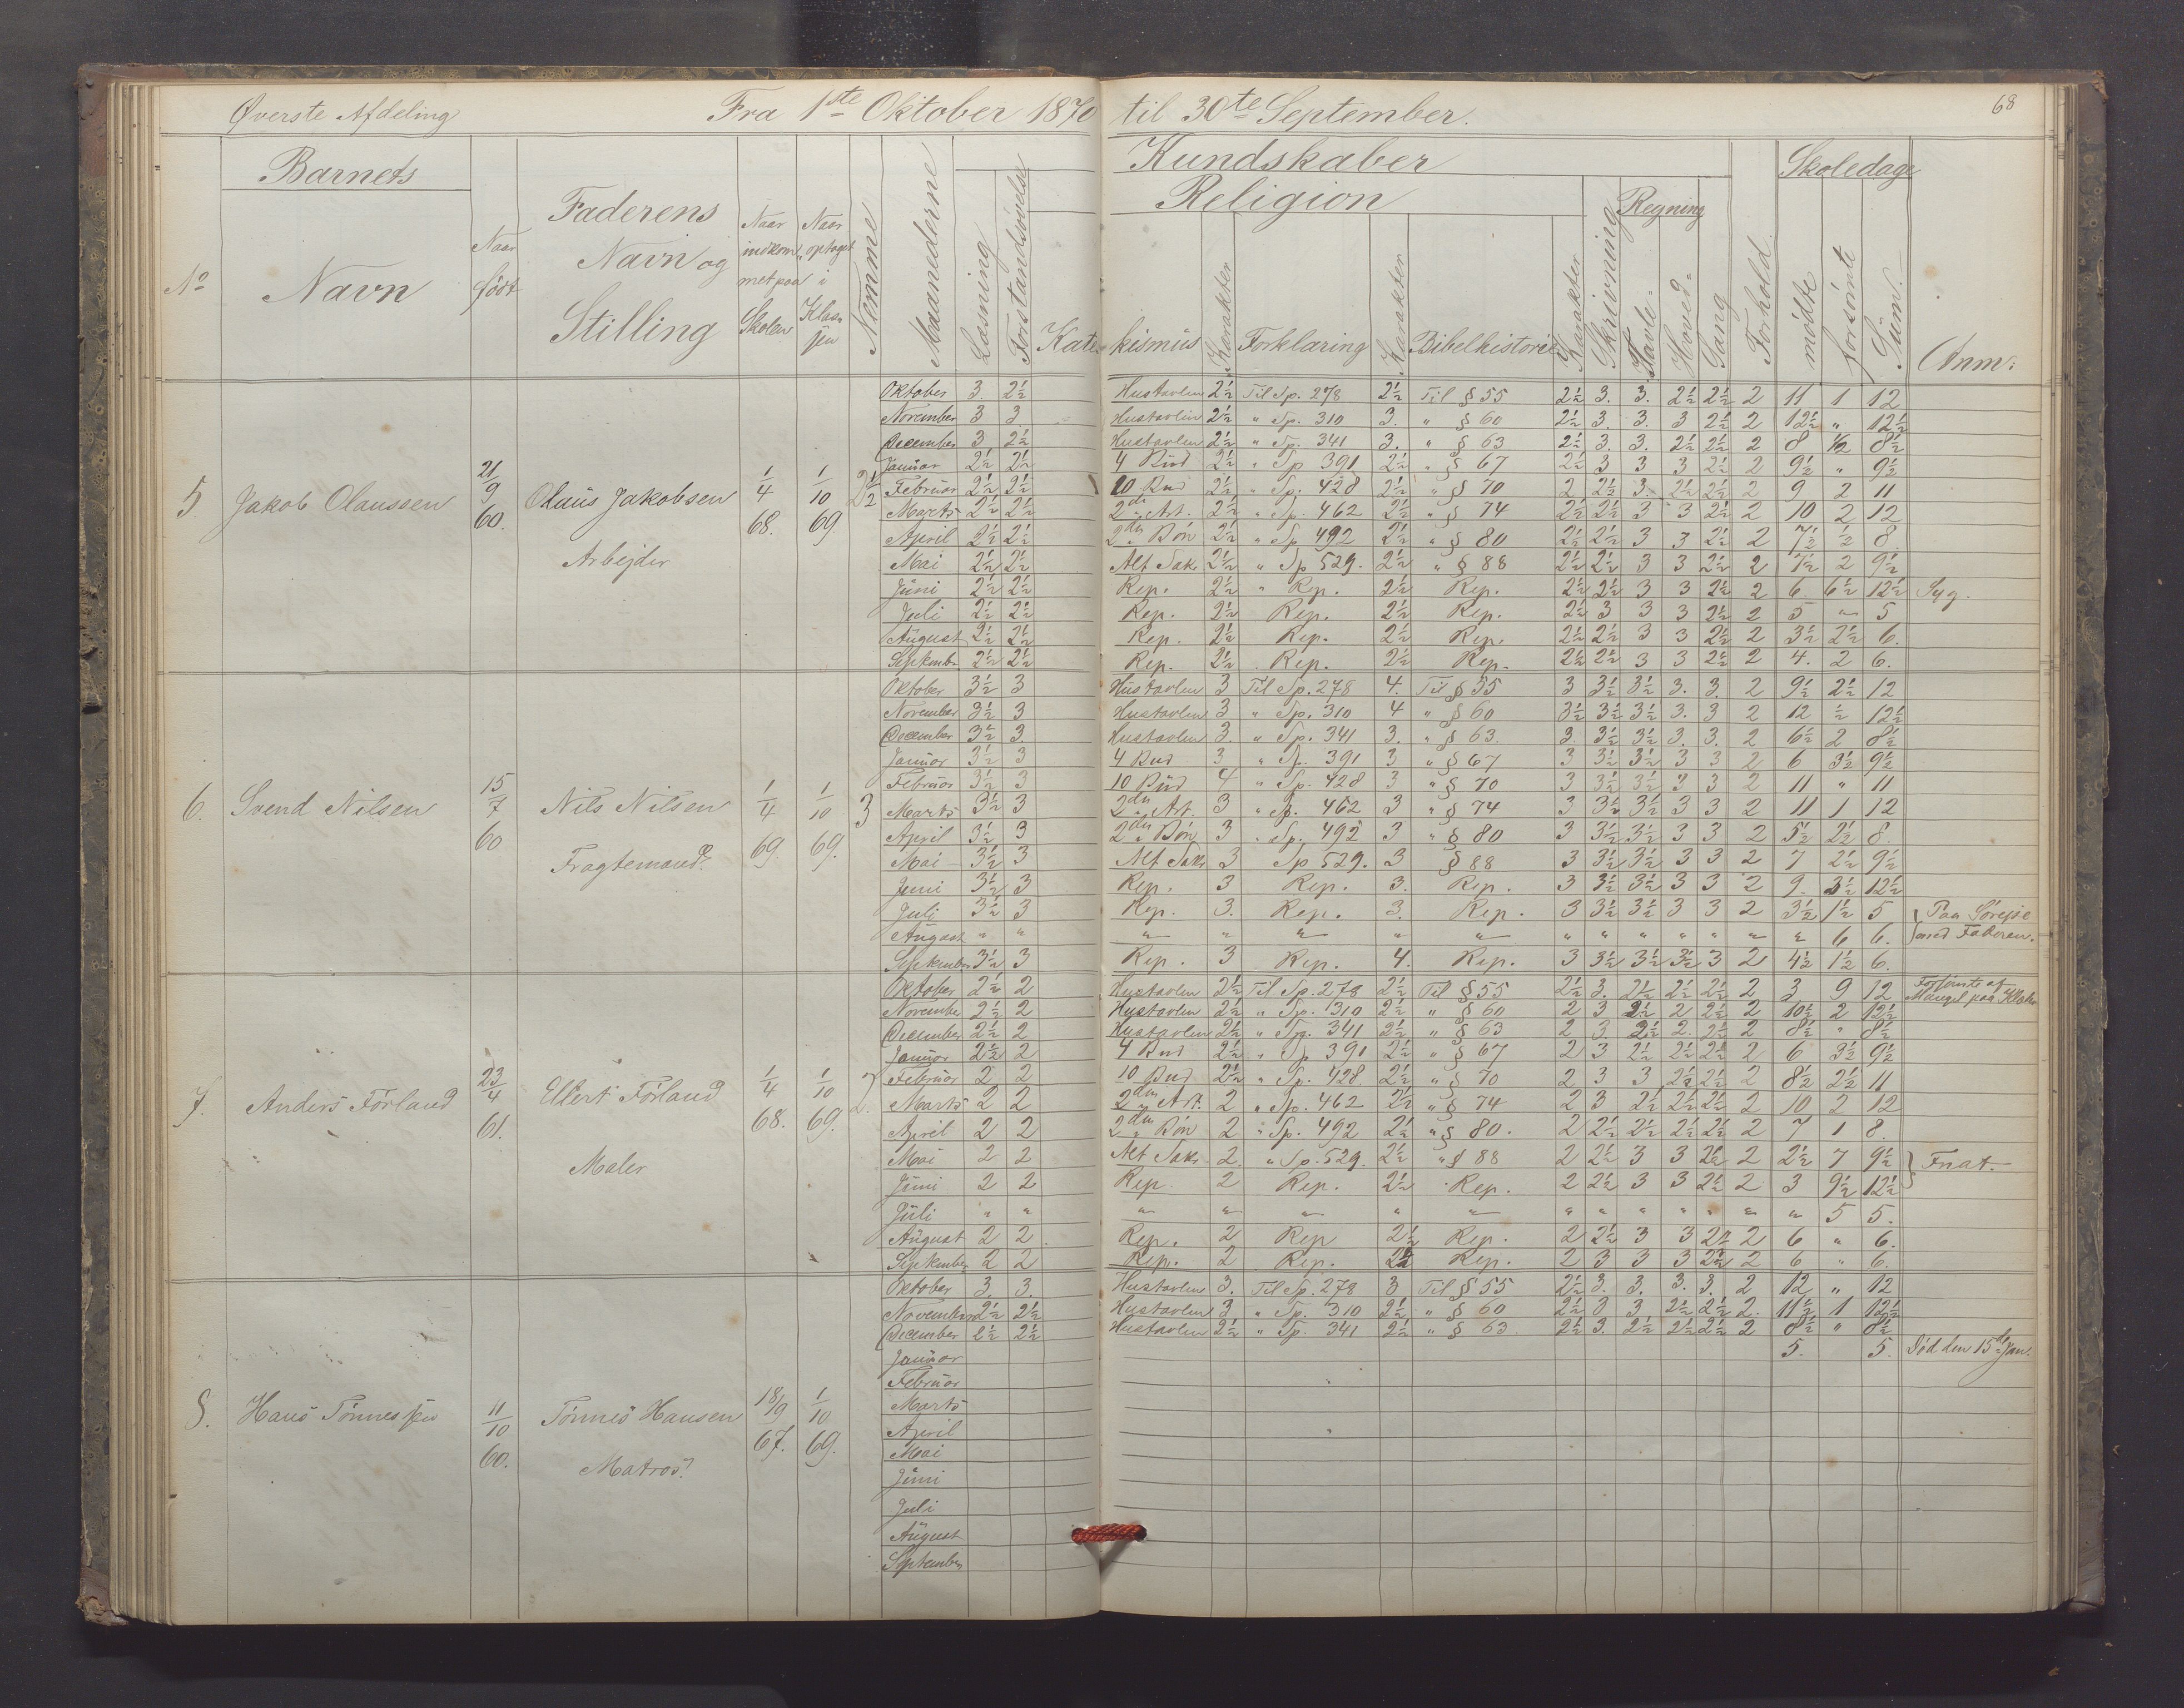 Øverste Afdeling Fra 1ste Oktober 1870 til 30te September. 68
Barnets Kundskaber Skoledage
Religion Regning
No Navn Naar født Faderens Navn og Stilling Naar indkommet paa Skolen Naar optaget i Klassen Nemme Maanederne Læsning Forstandsøvelse Katekismus Karakter Forklaring Karakter Bibelhistorie Karakter Skrivning Tavle- Hoved- Sang Forhold mødte forsømte Sum. Anm:
5 Jakob Olaussen 21/9 60. Olaus Jakobsen Arbejder 1/4 68. 1/10 69 2½
Oktober 3. 2½ Hustavlen 2½ Til Sp. 278 2½ Til § 55 2½ 3. 3. 2½ 2½ 2 11 1 12
November 3 3. Hustavlen 2½ " Sp. 310 3. " § 60 2½ 3. 3. 3 2½ 2 12½ " 12½
December 3 2½ Hustavlen 2½ " Sp. 341 3. " § 63 2½ 3. 3. 2½ 2½ 2 8 ½ 8½
Januar 2½ 2½ 4 Bud 2½ " Sp 391 2½ " § 67 2½ 3 3 3 2½ 2 9½ " 9½
Februar 2½ 2½ 10 Bud 2½ " Sp. 428 2½ " § 70 2 2½ 3. 2½ 2½ 2 9 2 11
Marts 2½ 2½ 2den Art. 2½ " Sp. 462 2½ " § 74 2½ 2½ 3 3 2½ 2 10 2 12
April 2½ 2½ 2den Bøn 2½ " Sp 492 2½ " § 80 2½ 2½ 3 3 2½ 2 7½ ½ 8
Mai 2½ 2½ Alt Sak. 2½ " Sp 529. 2½ " § 88 2½ 2½ 3 3 2½ 2 7½ 2 9½
Juni 2½ 2½ Rep. 2½ " Rep. 2½ Rep. 2½ 2½ 3 3 2½ 2 6. 6½ 12½ Syg.
Juli 2½ 2½ Rep. 2½ Rep. 2½ Rep. 2½ 3 3 3 2½ 2 5 " 5
August 2½ 2½ Rep. 2½ Rep. 2½ Rep. 2½ 2½ 3 3 2½ 2 3½ 2½ 6.
September 2½ 2½ Rep. 2½ Rep. 2½ Rep. 2½ 2½ 3 3 2½ 2 4. 2 6.
6. Svend Nilsen 15/7 60 Nils Nilsen Fragtemand. 1/4 69. 1/10 69. 3
Oktober 3½ 3 Hustavlen 3 Til Sp. 278 4. Til § 55 3 3½ 3½ 3. 3. 2 9½ 2½ 12
November 3½ 3 Hustavlen 3 " Sp. 310 4 " § 60 3½ 3½ 3½ 3. 3 2 12 ½ 12½
December 3½ 3 Hustavlen 3. " Sp. 341 3. " § 63. 3. 3½ 3½ 3. 3. 2 6½ 2 8½
Januar 3½ 3 4 Bud 3 " Sp. 391 3 " § 67 3 3½ 3½ 3 3 2 6 3½ 9½
Februar 3½ 3 10 Bud 4 " Sp. 428 3 " § 70 3 3½ 3½ 3 3 2 11 " 11
Marts 3½ 3 2den Art. 3 " Sp. 462 3 " § 74 3 3½ 3½ 3 3 2 11 1 12
April 3½ 3 2den Bøn 3 " Sp. 492 3 " § 80 3 3½ 3½ 3 3 2 5½ 2½ 8.
Mai 3½ 3 Alt Sak. 3 Sp 529. 3 § 88 3 3½ 3½ 3 3 2 7 2½ 9½
Juni 3½ 3 Rep. 3 Rep. 3. Rep. 3 3½ 3½ 3 3 2 9. 3½ 12½
Juli 3½ 3 Rep. 3. Rep. 3. Rep. 3 3½ 3½ 3 3 2 3½ 1½ 5 Paa Sørejse
August " " " " " " " " " " " " " " 6 6. med Faderen.
September 3½ 3 Rep. 3 Rep. 4. Rep. 3 3½ 3½ 3½ 3 2 4½ 1½ 6.
7. Anders Førland 23/4 61. Ellert Førland Maler 1/4 68. 1/10 69. 2.
Oktober 2½ 2 Hustavlen 2½ Til Sp. 278 2½ Til § 55 2½ 3. 2½ 2½ 2½ 2 3 9 12 Forsømte af Mangel paa Klæder
November 2½ 2 Hustavlen 2½ " Sp. 310 2½ " § 60 2 3 2½ 2 2½ 2 10½ 2 12½
December 2½ 2 Hustavlen 2½ " Sp. 341 2½ " § 63 2 3 2½ 2. 2½ 2 8½ " 8½
Januar 2½ 2 4 Bud 2½ " Sp 391 2½ " § 67 2 3 2½ 2½ 2½ 2 6 3½ 9½
Februar 2 2 10 Bud 2½ " Sp. 428 2½ " § 70 2 3 3 2½ 2½ 2 8½ 2½ 11
Marts 2 2 2den Art. 2 " Sp. 462 2½ " § 74 2 3 2½ 2½ 2½ 2 10 2 12
April 2 2 2den Bøn 2 " Sp. 492 2½ " § 80. 2 2½ 2½ 2½ 2½ 2 7 1 8.
Mai 2 2 Alt Sak. 2 " Sp. 529. 2½ " § 88 2 2½ 3 3 2½ 2 2½ 7 9½ Fnat.
Juni 2 2 Rep. 2 Rep. 2½ Rep. 2 2½ 3 3 2½ 2 3 9½ 12½
Juli " " " " " " " " " " " " " " 5 5.
August 2 2 Rep. 2 Rep 2½ Rep. 2 2½ 3 3 2½ 2 6 " 6.
September 2 2 Rep. 2 Rep. 2½ Rep. 2 3 3 3 2½ 2 6 " 6.
8. Hans Tønnessen 11/10 60. Tønnes Hansen Matros. 18/9 67. 1/10 69.
Oktober 3. 3. Hustavlen 3. Til Sp. 278 3 Til § 55 2½ 3. 3. 3. 3. 2 12 " 12
November 2½ 2½ Hustavlen 3 " Sp. 310 2½ " § 60 2½ 3 3 2½ 2½ 2. 11½ 1 12½
December 2½ 2½ Hustavlen 2½ " Sp. 341 2½ " § 63. 2½ 3. 2½ 2½ 2½ 2 8½ " 8½
Januar 5. 5. Død den 15de Jan.
Februar
Marts
April
Mai
Juni
Juli
August
September